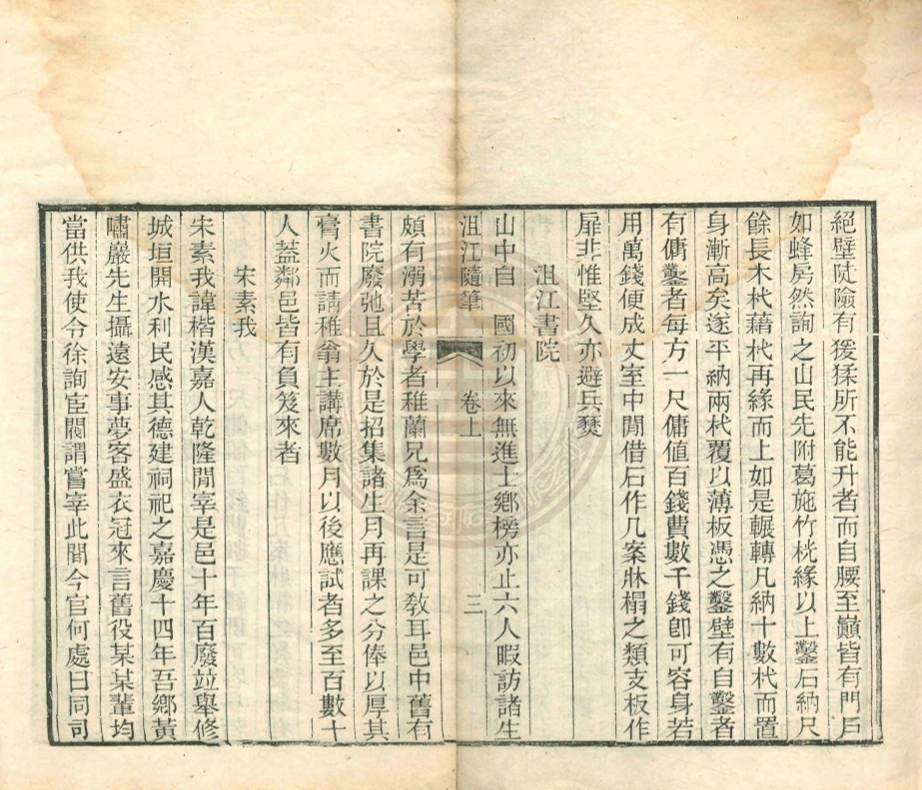 絕壁陡險有猨猱所不能升者而自腰至巔皆有門戶
如蜂房然詢之山民先附葛施竹桄緣以上鑿石納尺
餘長木杙藉杙再緣而上如是輾轉凡納十數杙而置
身漸高矣遂平納兩杙覆以薄板憑之鑿壁有自鑿者
有傭鑿者每方一尺傭值百錢費數千錢卽可容身若
用萬錢便成丈室中閒借石作几案牀榻之類支板作
扉非惟堅久亦避兵燹
沮江書院
山中自 國初以來無進士鄉榜亦止六人暇訪諸生
沮江隨筆 卷上 三
頗有溺苦於學者稚蘭兄爲余言是可敎耳邑中舊有
書院廢弛且久於是招集諸生月再課之分俸以厚其
膏火而請稚翁主講席數月以後應試者多至百數十
人葢鄰邑皆有負笈來者
宋素我
宋素我諱楷漢嘉人乾隆閒宰是邑十年百廢竝舉修
城垣開水利民感其德建祠祀之嘉慶十四年吾鄉黃
嘯巖先生攝遠安事夢客盛衣冠來言舊役某某輩均
當供我使令徐詢宦閥謂嘗宰此閒今官何處曰同司